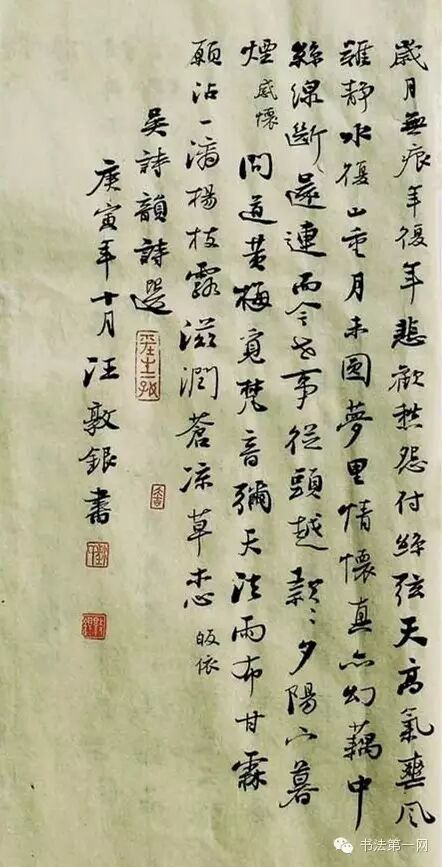 歲月無痕年復年悲歡愁怨付絲弦天高氣爽風
難靜水復山重月未圓夢里情懷真亦幻藕中
絲線斷還連而今世事從頭越款〻夕陽下暮
煙 感懷 問道黃梅覓梵音彌天法雨布甘霖
願沾一滴楊枝露滋潤蒼涼草木心 皈依
吳詩韻詩選
庚寅年十月汪敦銀書
书法第一网